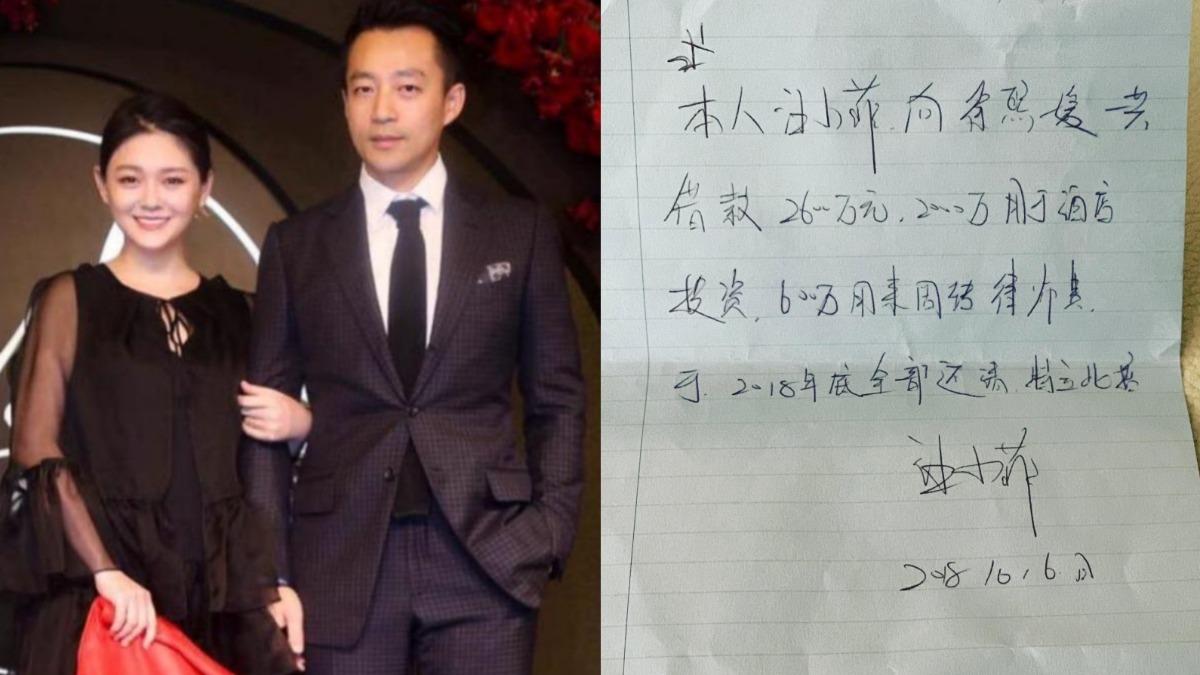 本人汪小菲,向徐熙媛共
借款2600万元,2000万用于酒店
投资,600万用来周转律师费,
于2018年底全部还清,特立此据
汪小菲
2018.10.6.日